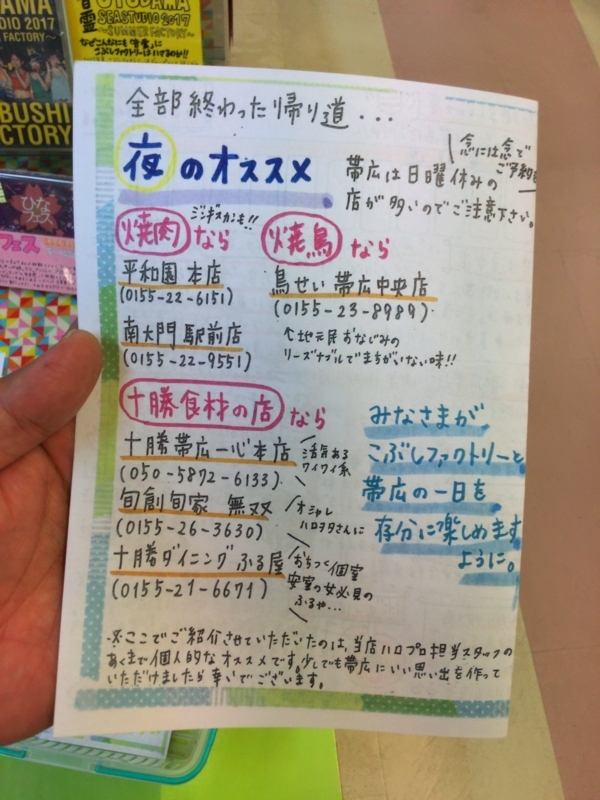 DAMA
DIO 2017
FACTORY~
BUSHI
CTORY
OTODAMA
SEA STUDIO 2017
~SUMMER FACTORY~
ひな
フェス
フェス
全部終わった帰り道...
夜のオススメ
念には念で
ご予約を
帯広は日曜休みの
店が多いのでご注意下さい。
焼肉なら
ジンギスカンも!!
平和園 本店
(0155-22-6151)
南大門 駅前店
(0155-22-9551)
焼鳥なら
鳥せい 帯広中央店
(0155-23-8989)
↑地元民おなじみの
リーズナブルでまちがいない味!!
十勝食材の店なら
十勝帯広一心本店
(050-5872-6133)
活気ある
ワイワイ系
旬創旬家 無双
(0155-26-3630)
オシャレ
ハロヲタさんに
十勝ダイニング ふる屋
(0155-21-6671)
おちつく個室
安室の女必見の
ふるや...
みなさまが、
こぶしファクトリーと
帯広の一日を
存分に楽しめます
ように。
※ここでご紹介させていただいたのは、当店ハロプロ担当スタッフの
あくまで個人的なオススメです。少しでも帯広にいい思い出を作って
いただけましたら幸いでございます。